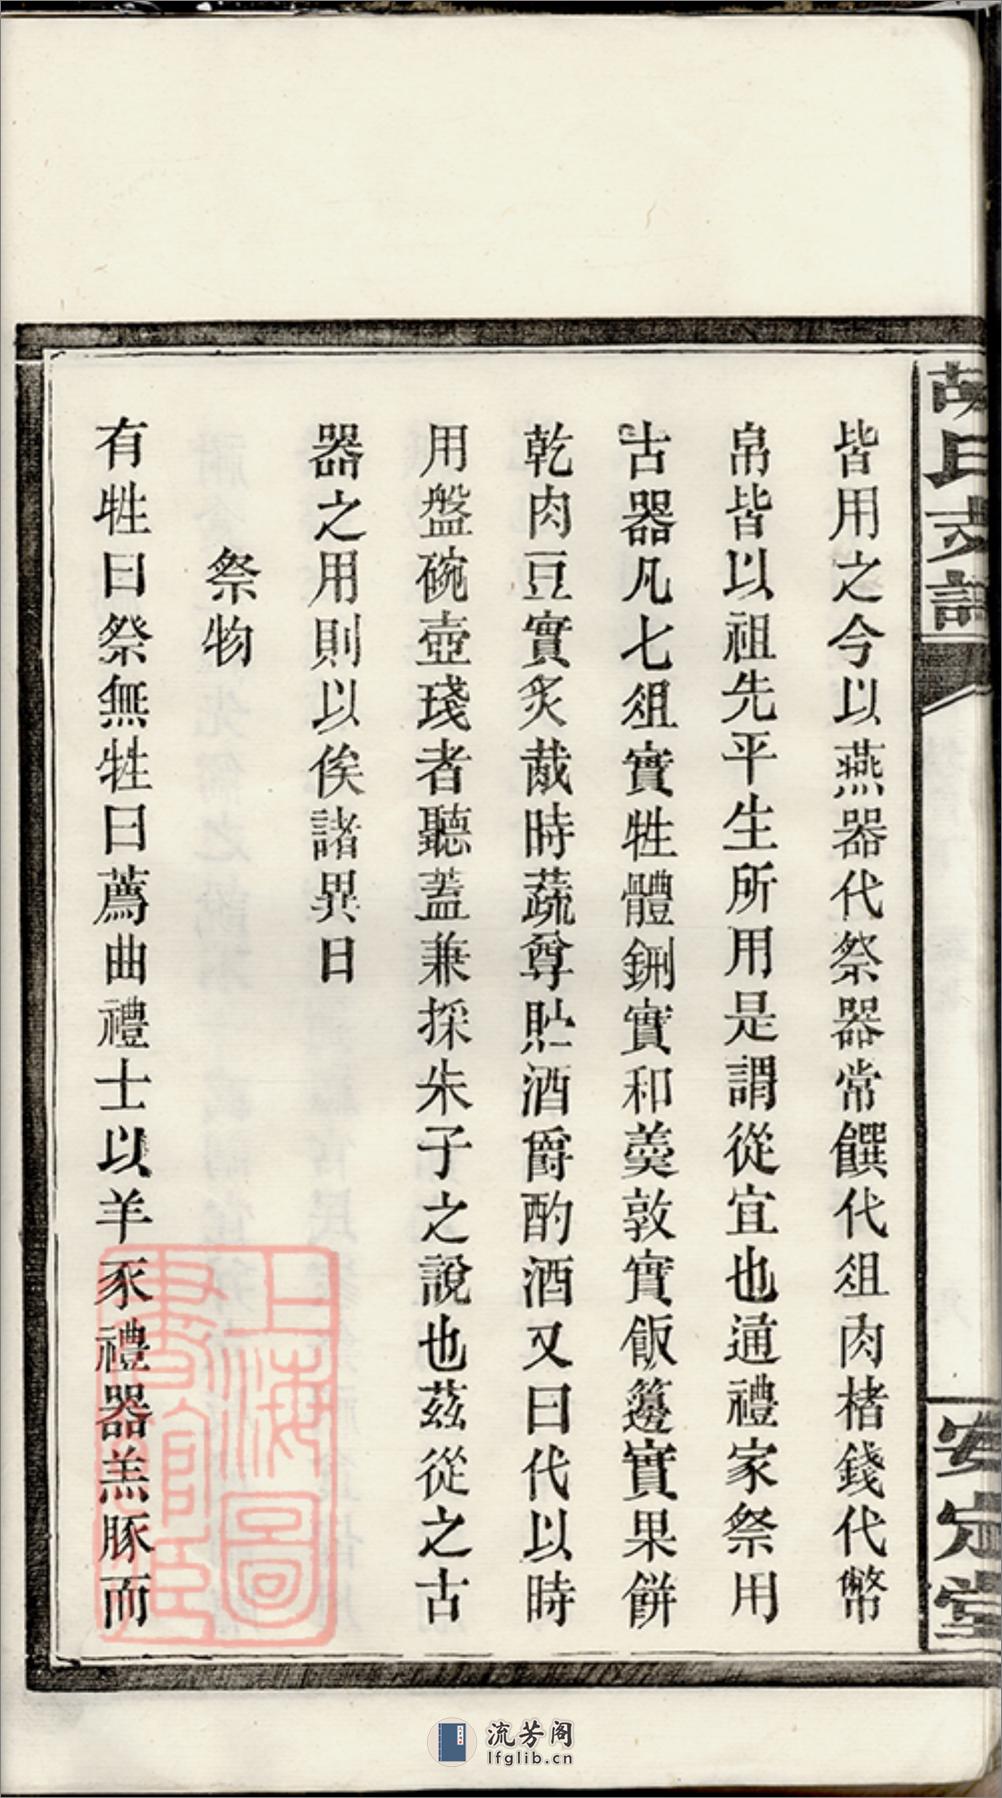 胡氏支譜
安定堂
皆用之今以燕器代祭器常饌代俎肉楮錢代幣
帛皆以祖先平生所用是謂從宜也通禮家祭用
古器凡七俎實牲體鉶實和羹敦實飯籩實果餅
乾肉豆實炙胾時蔬尊貯酒爵酌酒又曰代以時
用盤碗壺琖者聽蓋兼採朱子之說也茲從之古
器之用則以俟諸異日
祭物
有牲曰祭無牲曰薦曲禮士以羊豕禮器羔豚而
上海圖
書館藏
流芳阁
lfglib.cn